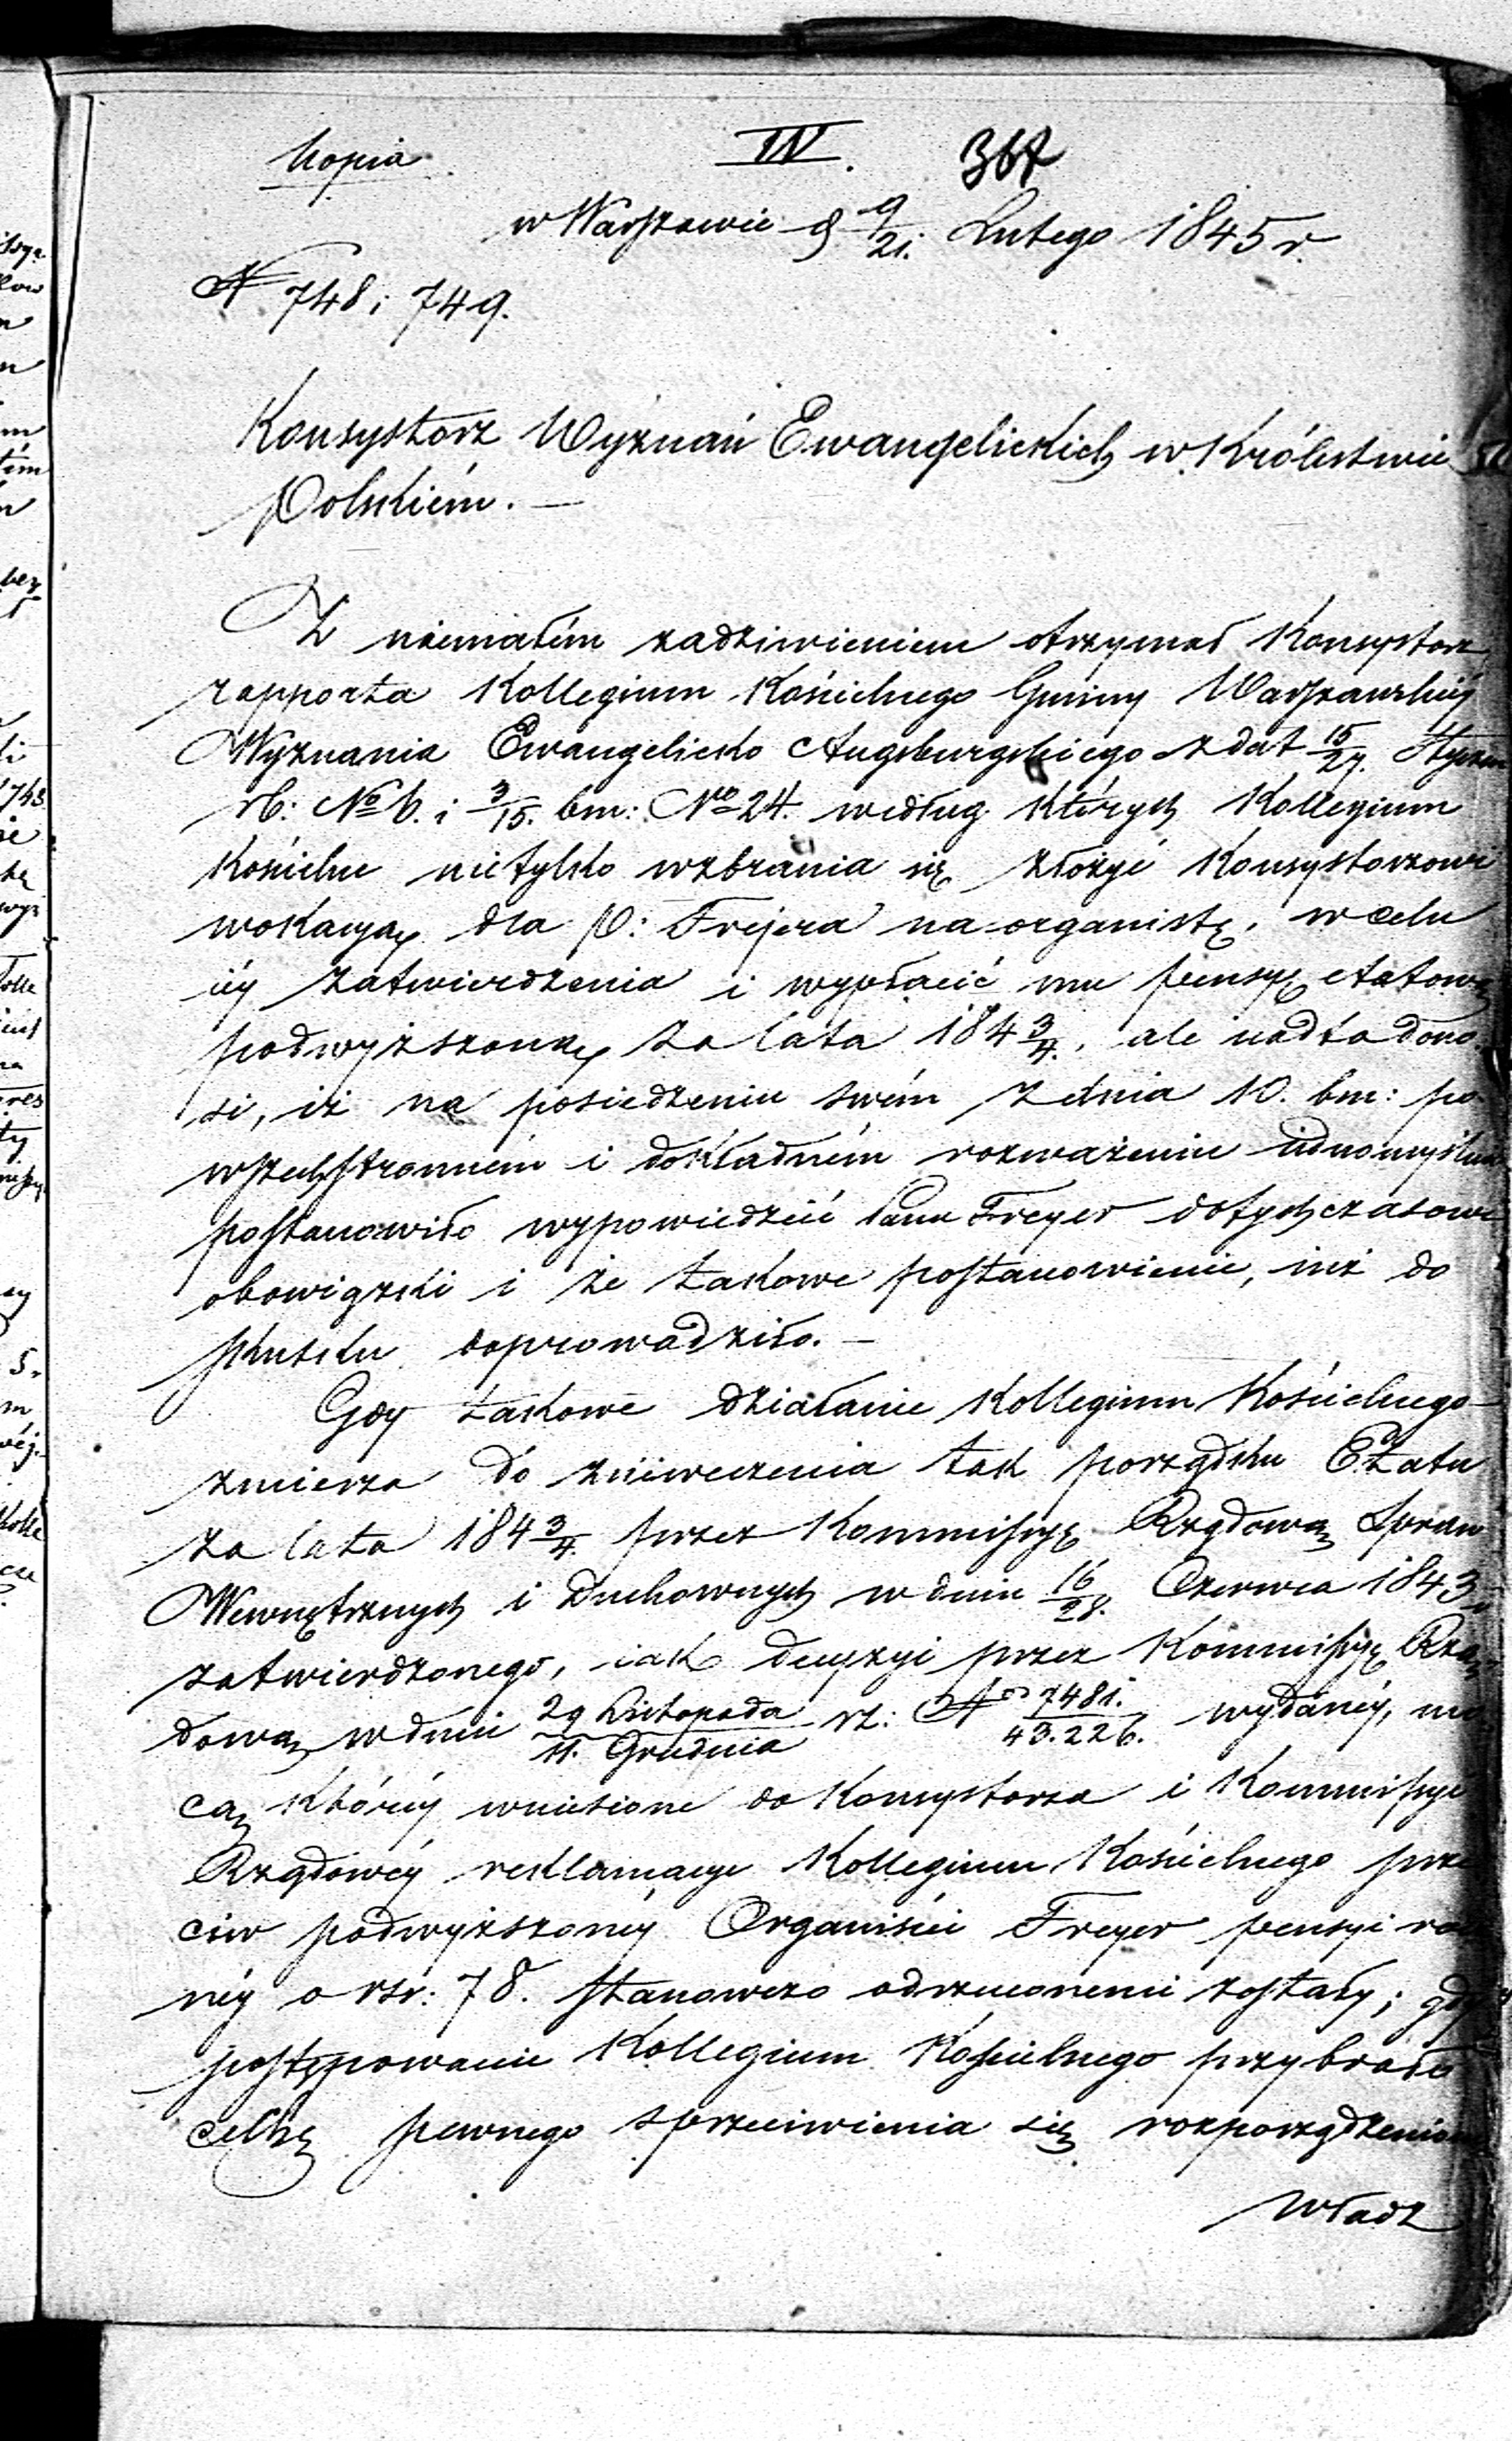 Kopia
IV. 367
w Warszawie d 9/21. Lutego 1845 r.
N 748 i 749.
Konsystorz Wyznań Ewangelickich w Królestwie
Polskiém. —
Z niemałém zadziwieniem otrzymał Konsystorz
rapporta Kollegium Kościelnego Gminy Warszawskiéj
Wyznania Ewangelicko Augsburgskiego z dat 15/27. Stycznia
rb: No 6. i 3/15. bm: No 24. według których Kollegium
Kościelne nietylko wzbrania się złożyć Konsystorzowi
wokacyą dla P: Frejera na organistę, w celu
iéj zatwierdzenia i wypłacić mu pensyę etatową
podwyższoną za lata 184 3/4., ale nadto dono-
si, iż na posiedzeniu swém z dnia 10. bm: po
wszechstronném i dokładném rozważeniu iednomyślnie
postanowiło wypowiedzieć Panu Freyer dotychczasowe
obowiązki i że takowe postanowienie, iuż do
skutku doprowadziło. —
Gdy takowe działanie Kollegium Kościelnego
zmierza do zniweczenia tak porządku Etatu
za lata 184 3/4. przez Kommissyę Rządową Spraw
Wewnętrznych i Duchownych w dniu 16/28. Czerwca 1843 r
zatwierdzonego, iak decyzyi przez Kommissyę Rzą-
dową w dniu 29 Listopada/11. Grudnia rz: No 7481./43.226. wydanéj, mo
cą któréj wniesione do Konsystorza i Kommissyi
Rządowéj reklamacye Kollegium Kościelnego prze
ciw podwyższonéj Organiście Freyer pensyi rocz
néj o rsr: 78. stanowczo odrzuconemi zostały; gdy
postępowanie Kollegium Kościelnego przybrało
cechę pewnego sprzeciwienia się rozporządzeniom
Władz